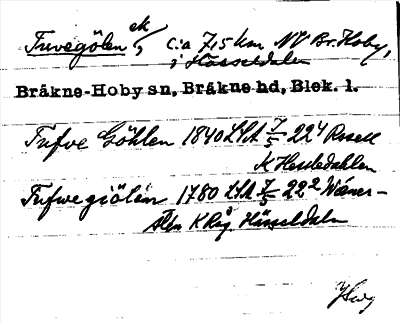 Tuvegölen c:a 7,5 km NV Br. Hoby,
i Hässeldalen
Bråkne-Hoby sn, Bråkne hd, Blek. l.
Tufve Göhlen 1840 LSA 7/5 22⁴
K Hessledahlen
Tufwe giölen 1780 LSA 7/5 22²
K Råg Hässeldalen